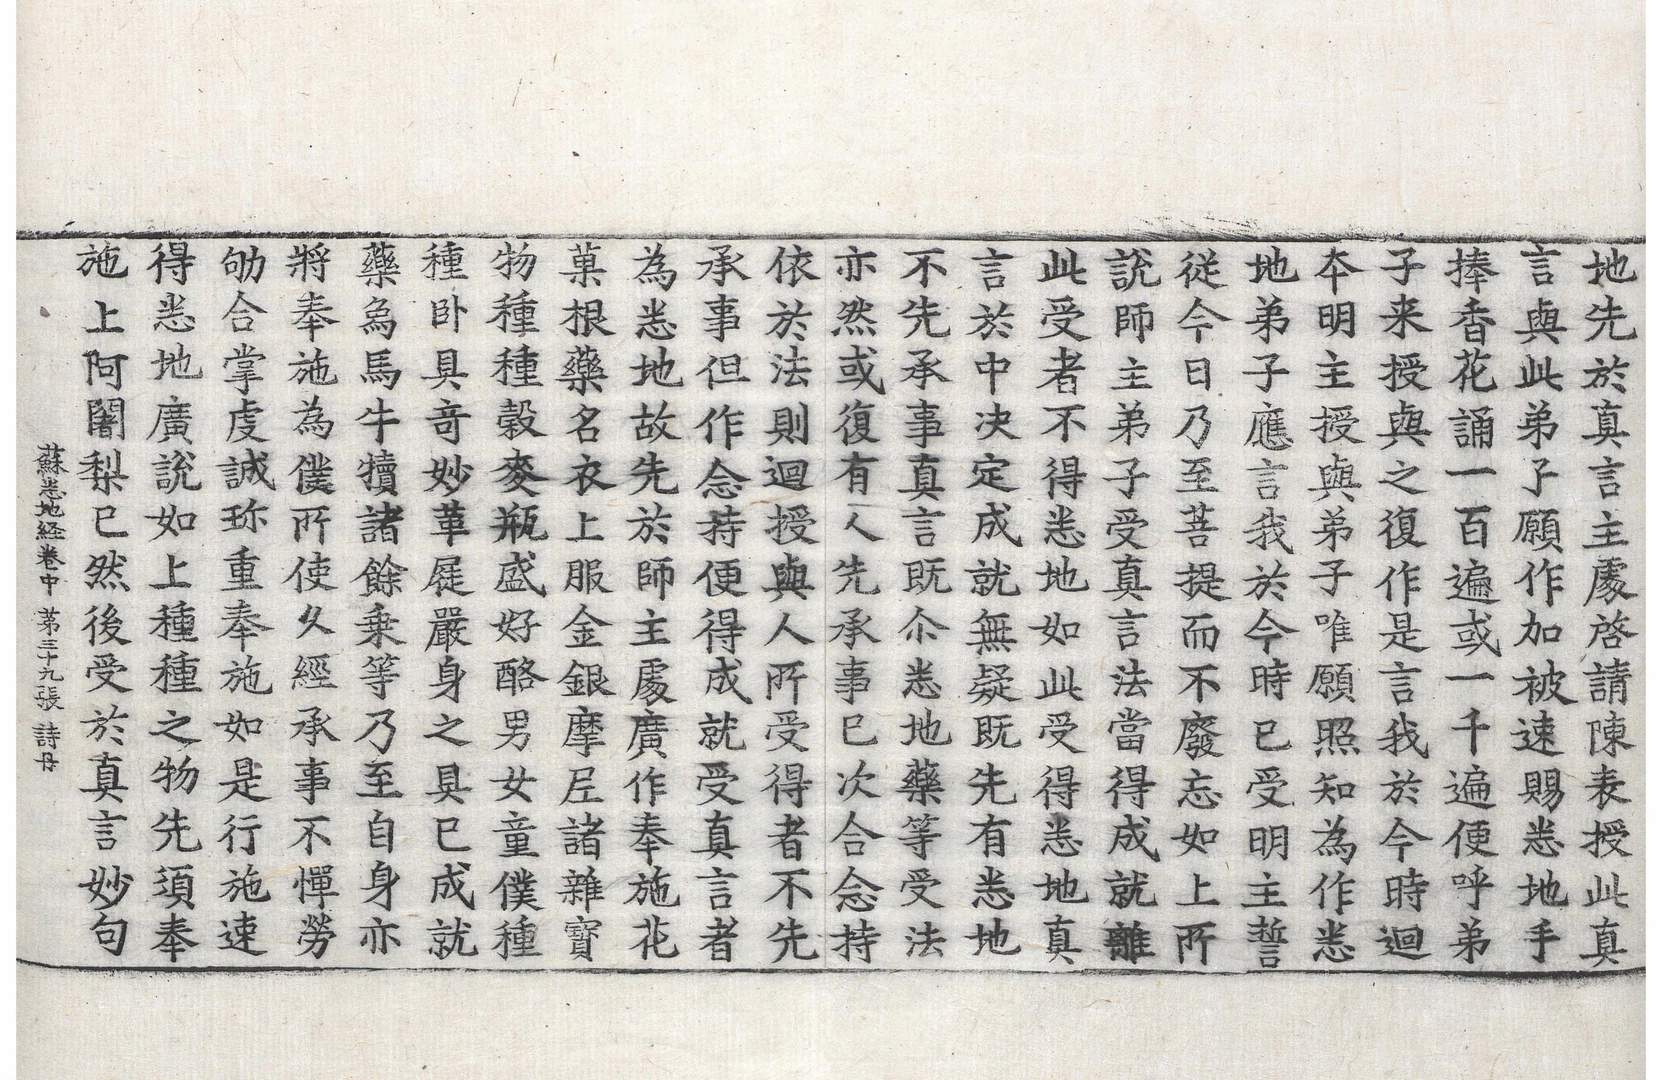 地先於真言主處啓請陳表授此真
言與此弟子願作加被速賜悉地手
捧香花誦一百遍或一千遍便呼弟
子来授與之復作是言我於今時迴
夲明主授與弟子唯願照知為作悉
地弟子應言我於今時已受明主誓
従今日乃至菩提而不廢忘如上所
說師主弟子受真言法當得成就離
此受者不得悉地如此受得悉地真
言於中决定成就無疑既先有悉地
不先承事真言既尒悉地藥等受法
亦然或復有人先承事已次合念持
依於法則迴授與人所受得者不先
承事但作念持便得成就受真言者
為悉地故先於師主處廣作奉施花
菓根藥名衣上服金銀摩尼諸雜寳
物種種穀麥瓶盛好酪男女童僕種
種卧具竒妙革屣嚴身之具已成就
藥烏馬牛犢諸餘乗等乃至自身亦
將奉施為僕所使久經承事不憚勞
劬合掌虔誠珎重奉施如是行施速
得悉地廣說如上種種之物先湏奉
施上阿闍梨已然後受於真言妙句
蘇悉地経卷中 苐三十九張 詩丹